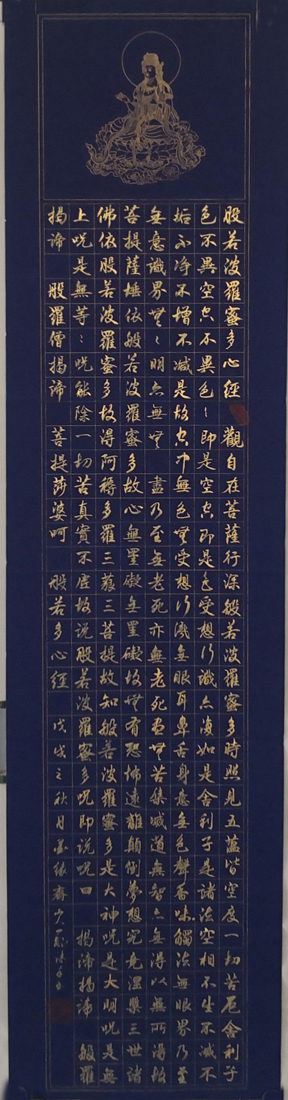 般若波羅蜜多心經 觀自在菩薩行深般若波羅蜜多時照見五蘊皆空度一切苦厄舍利子
色不異空空不異色色即是空空即是色受想行識亦復如是舍利子是諸法空相不生不滅不
垢不淨不增不減是故空中無色無受想行識無眼耳鼻舌身意無色聲香味觸法無眼界乃至
無意識界無無明亦無無明盡乃至無老死亦無老死盡無苦集滅道無智亦無得以無所得故
菩提薩埵依般若波羅蜜多故心無罣礙無罣礙故無有恐怖遠離顛倒夢想究竟涅槃三世諸
佛依般若波羅蜜多故得阿耨多羅三藐三菩提故知般若波羅蜜多是大神咒是大明咒是無
上咒是無等等咒能除一切苦真實不虛故說般若波羅蜜多咒即說咒曰 揭諦揭諦 般羅
揭諦 般羅僧揭諦 菩提莎婆呵 般若多心經 戊戌之秋月